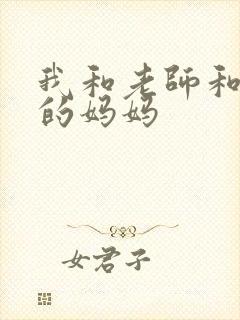 我和老師和
的妈妈
女君子